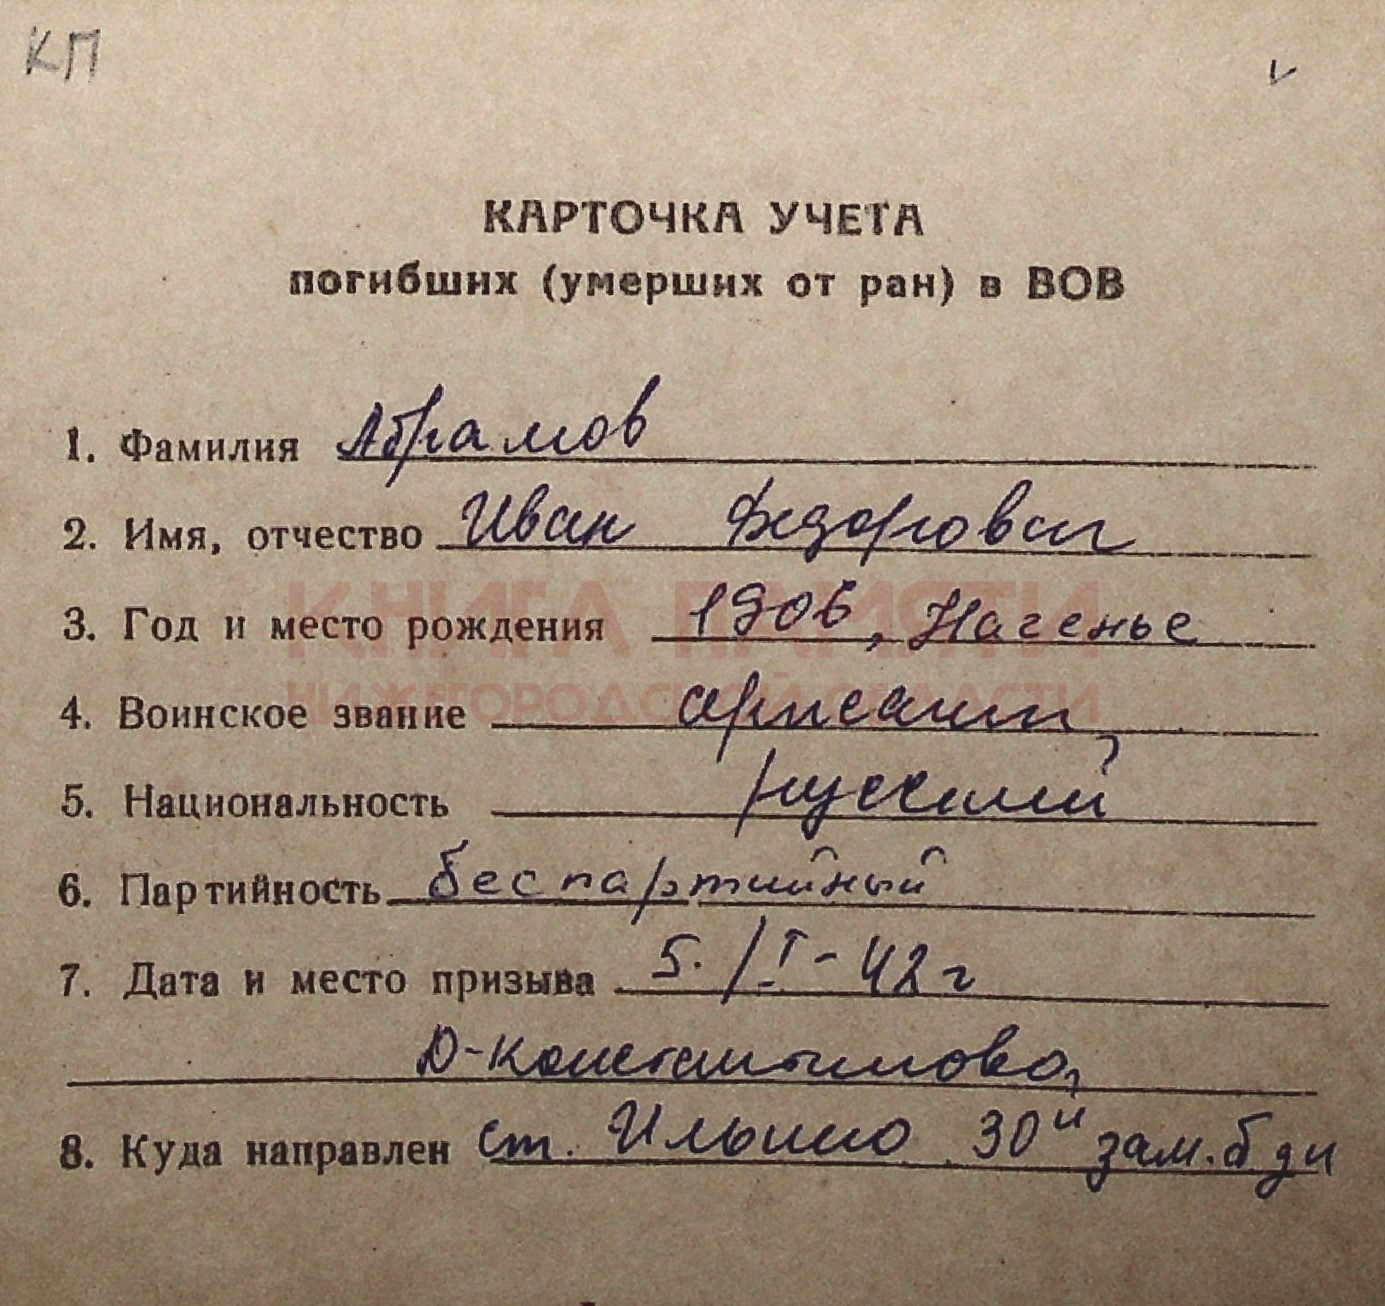 КП
КАРТОЧКА УЧЕТА
погибших (умерших от ран) в ВОВ
1. Фамилия Абрамов
2. Имя, отчество Иван Федорович
3. Год и место рождения 1906, Нагенье
КНИГА ПАМЯТИ
НИЖЕГОРОДСКОЙ ОБЛАСТИ
4. Воинское звание сержант
5. Национальность русский
6. Партийность беспартийный
7. Дата и место призыва 5./I-42г
Д-Константиново,
8. Куда направлен ст. Ильино 30й зап.